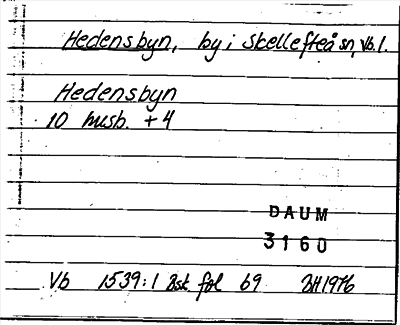 Hedensbyn, by i Skellefteå sn, Vb.l.
Hedensbyn
10 husb. + 4
DAUM
3160
Vb 1539:1 Bsk fol 69 BH1976